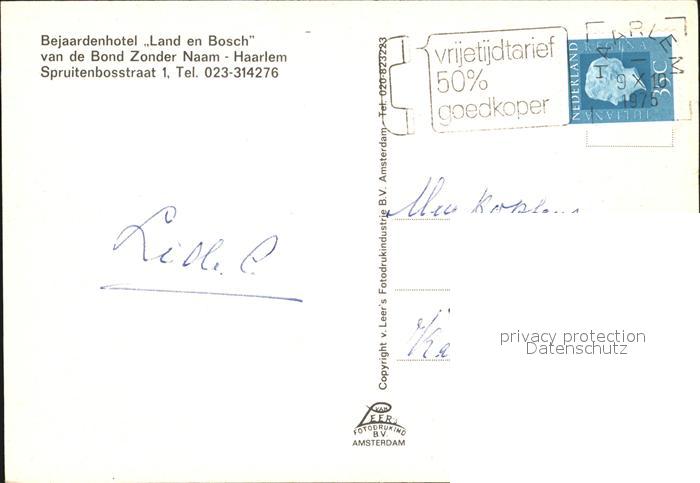 Bejaardenhotel „Land en Bosch”
van de Bond Zonder Naam - Haarlem
Spruitenbosstraat 1, Tel. 023-314276
vrijetijdtarief
50%
goedkoper
HAARLEM
9 X 16
1976
NEDERLAND
JULIANA
REGINA
35c
Copyright v. Leer's Fotodrukindustrie B.V. Amsterdam - Tel. 020-823223
privacy protection
Datenschutz
VAN
LEER'S
FOTODRUKIND
B.V.
AMSTERDAM